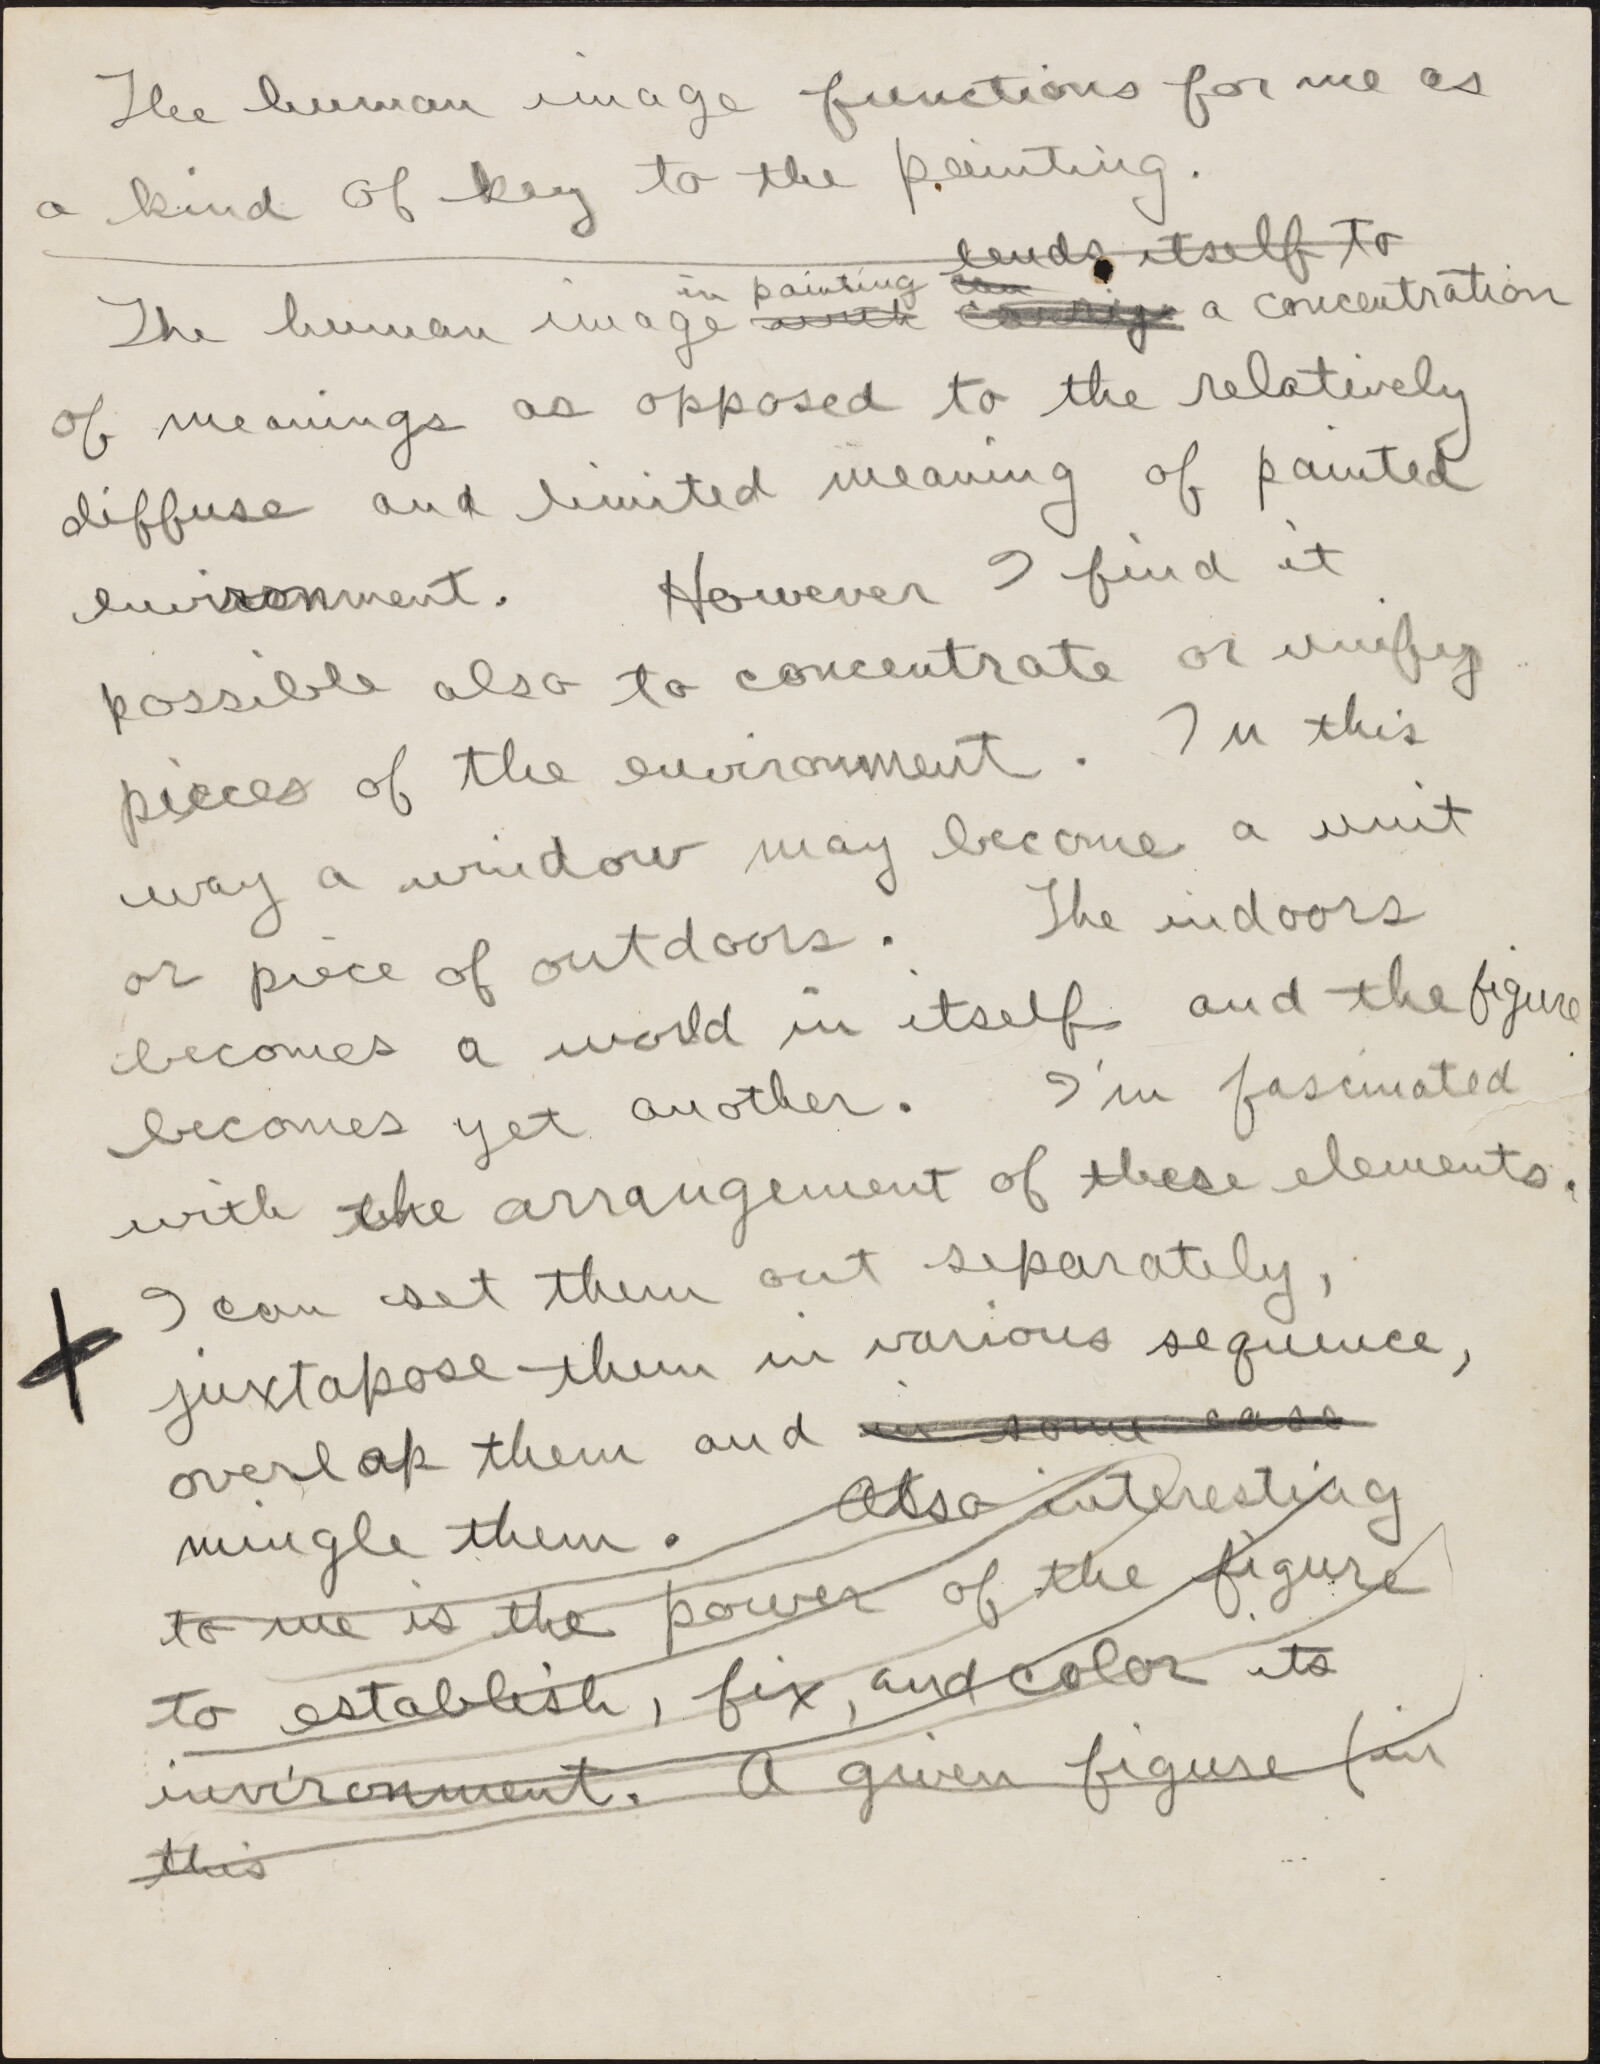 The human image functions for me as
a kind of key to the painting.
lends itself to
in painting can
The human image with a concentration
of meanings as opposed to the relatively
diffuse and limited meaning of painted
environment. However I find it
possible also to concentrate or unify
pieces of the environment. In this
way a window may become a unit
or piece of outdoors. The indoors
becomes a world in itself and the figure
becomes yet another. I'm fascinated
with the arrangement of these elements.
I can set them out separately,
juxtapose them in various sequence,
overlap them and in some case
mingle them. Also interesting
to me is the power of the figure
to establish, fix, and color its
invironment. A given figure (in
this